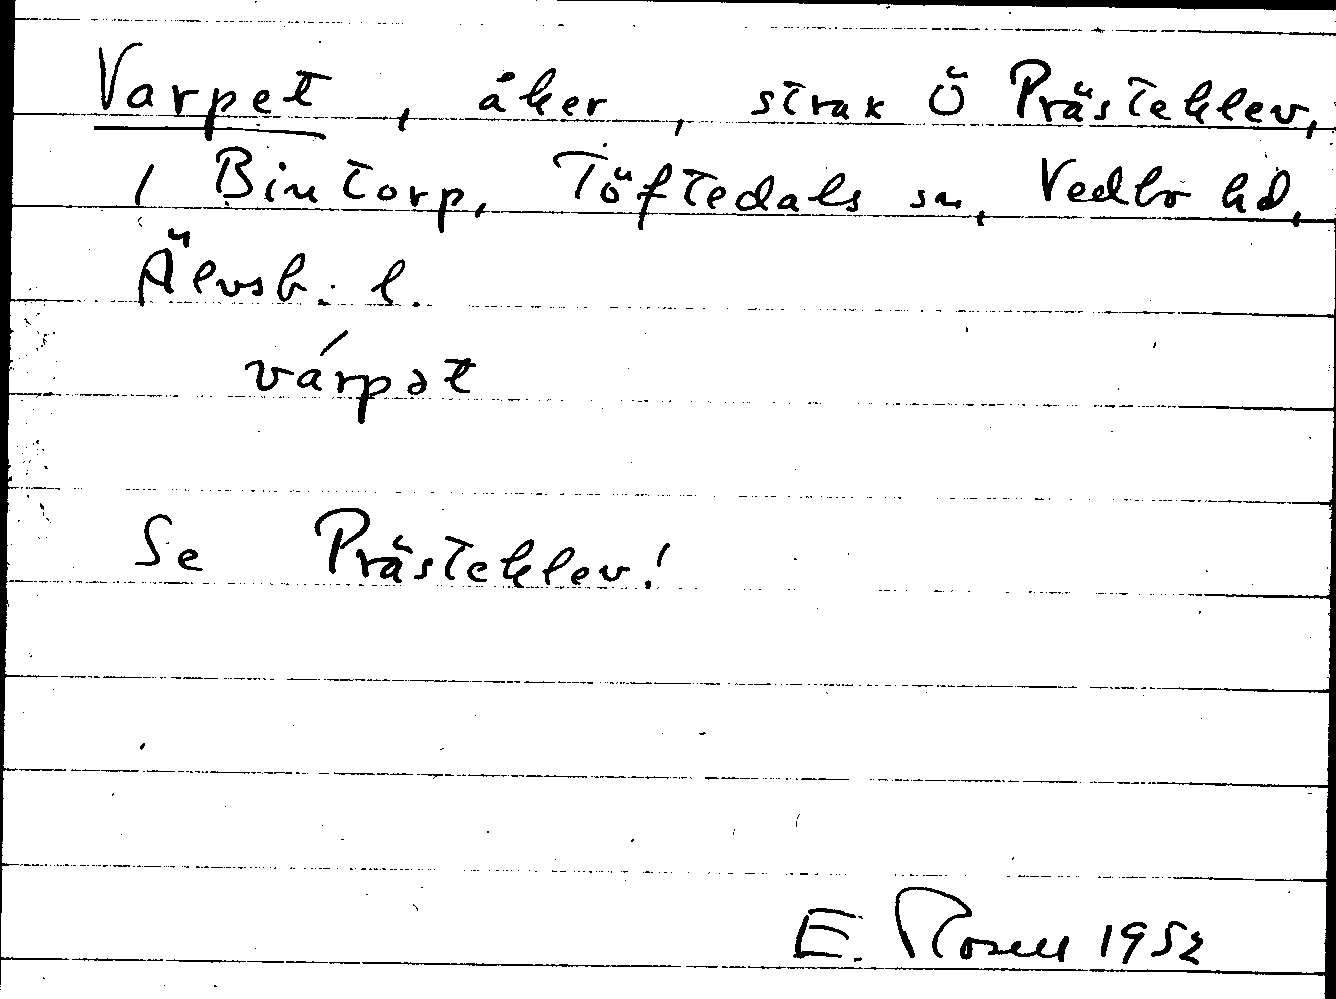 Varpet, åker, strax Ö Prästeklev,
i Bintorp, Töftedals sn, Vedbo hd,
Älvsb. l.
várpət
Se Prästeklev!
E. Rosell 1952